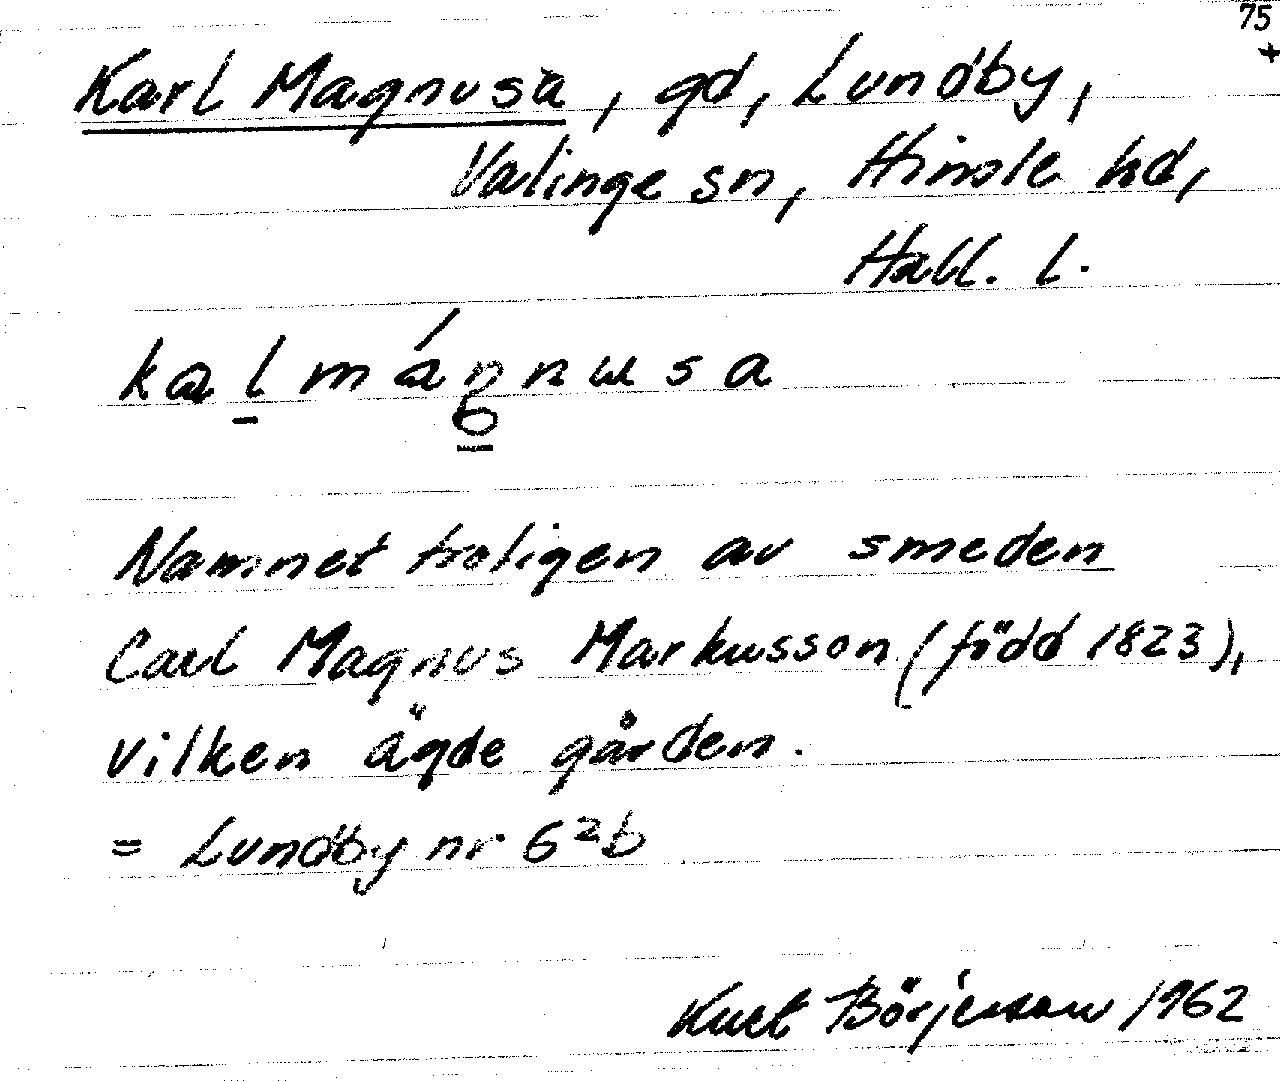 75
+
Karl Magnusa, gd, Lundby,
Valinge sn, Himle hd,
Hall. l.
kalmágnusa
Namnet troligen av smeden
Carl Magnus Markusson (född 1823),
vilken ägde gården.
= Lundby nr 6²b
Kurt Börjesson 1962